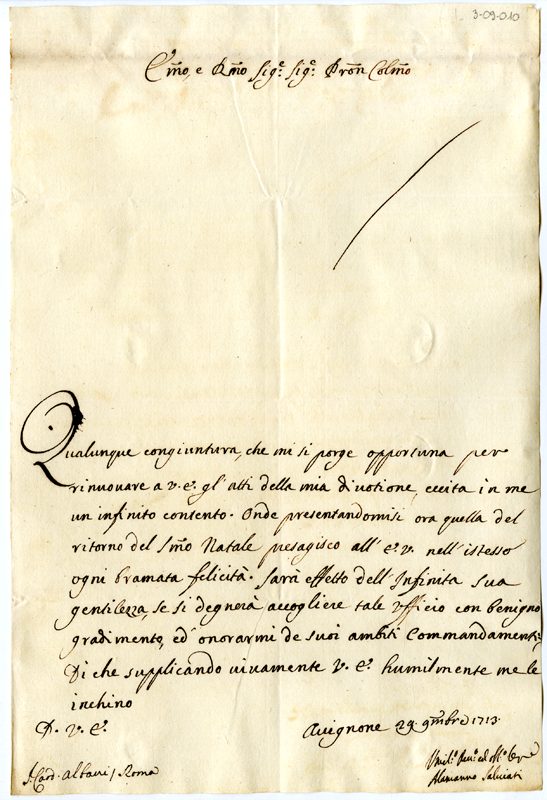 3-09-010
E͂mo, e R͂mo Sigr. Sigr. Pron͂ Colm͂o
Qualunque congiuntura, che mi si porge opportuna per
rinuovare a V. E. gl'atti della mia divotione, eccita in me
un infinito contento. Onde presentandomisi ora quella del
ritorno del Sm͂o Natale presagisco all'E. V. nell'istesso
ogni bramata felicità. Sarà effetto dell'Infinita sua
gentilezza, se si degnerà accogliere tale Ufficio con benigno
gradimento, ed onorarmi de suoi ambiti Commandamenti.
Di che supplicando vivamente V. E. humilmente me le
inchino
D. V. E.
Avignone 29. 9m͂bre 1713.
S. Card. Albani / Roma
Alamanno Salviati